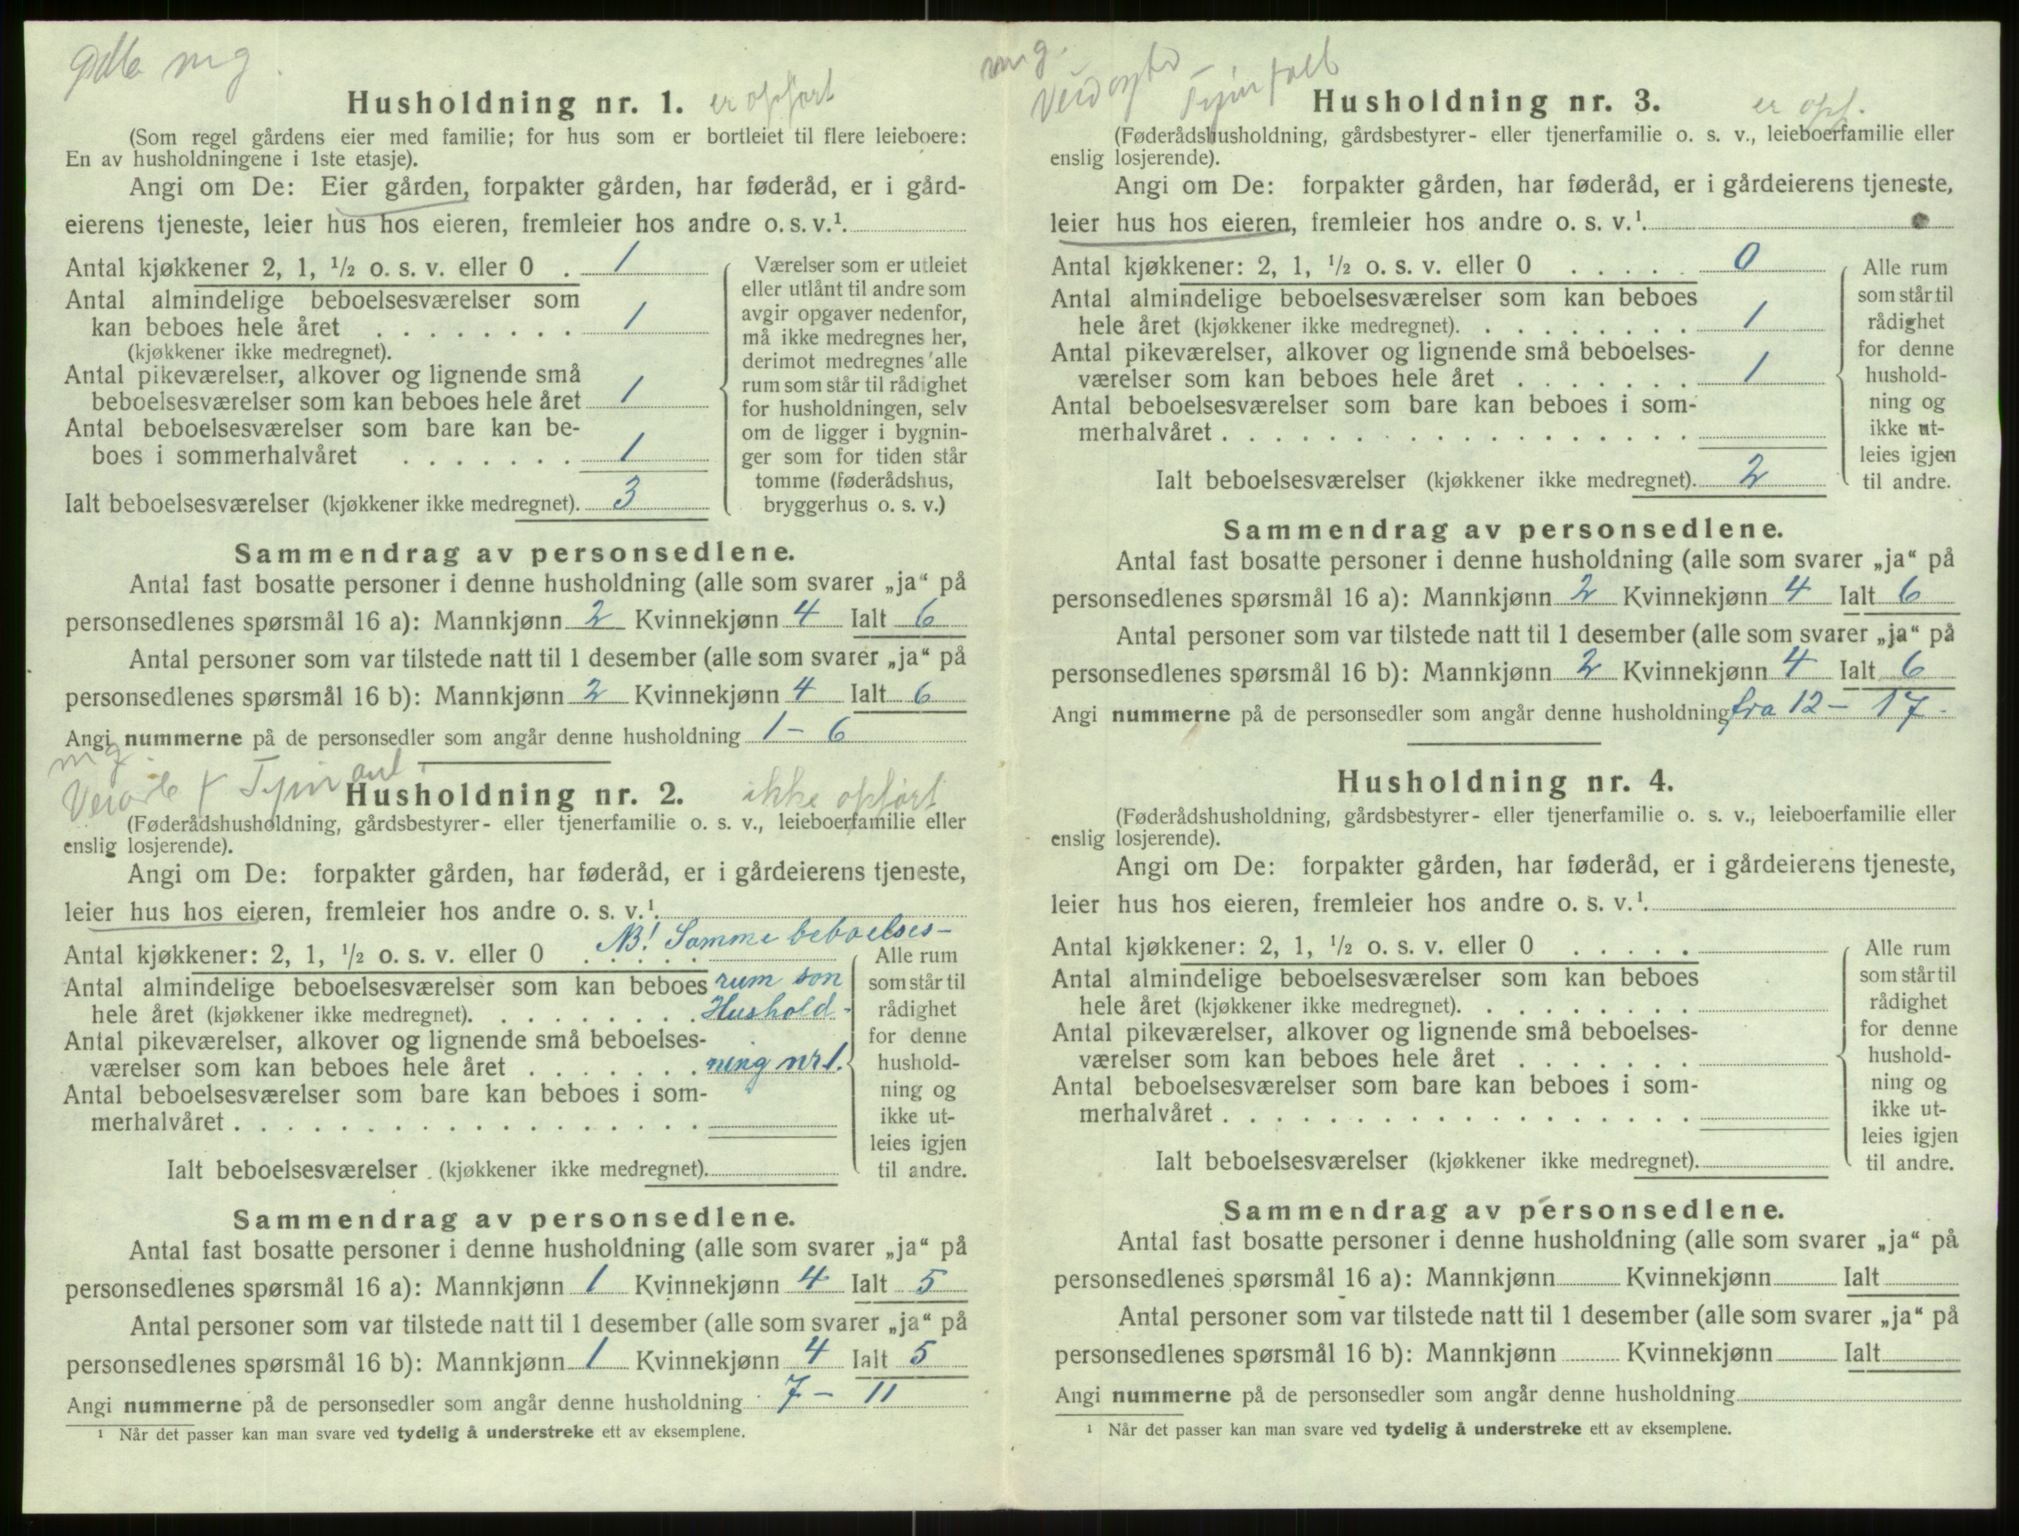 mg.
Husholdning nr. 1. er opført
(Som regel gårdens eier med familie; for hus som er bortleiet til flere leieboere:
En av husholdningene i 1ste etasje).
Angi om De: Eier gården, forpakter gården, har føderåd, er i gård-
eierens tjeneste, leier hus hos eieren, fremleier hos andre o. s. v.¹.
Antal kjøkkener 2, 1, ½ o. s. v. eller 0 . 1
Antal almindelige beboelsesværelser som
kan beboes hele året . . . . . . . . 1
(kjøkkener ikke medregnet).
Antal pikeværelser, alkover og lignende små
beboelsesværelser som kan beboes hele året 1
Antal beboelsesværelser som bare kan be-
boes i sommerhalvåret . . . . . . . 1
Ialt beboelsesværelser (kjøkkener ikke medregnet). 3
Værelser som er utleiet
eller utlånt til andre som
avgir opgaver nedenfor,
må ikke medregnes her,
derimot medregnes alle
rum som står til rådighet
for husholdningen, selv
om de ligger i bygnin-
ger som for tiden står
tomme (føderådshus,
bryggerhus o. s. v.)
Sammendrag av personsedlene.
Antal fast bosatte personer i denne husholdning (alle som svarer „ja“ på
personsedlenes spørsmål 16 a): Mannkjønn 2 Kvinnekjønn 4 Ialt 6
Antal personer som var tilstede natt til 1 desember (alle som svarer „ja“ på
personsedlenes spørsmål 16 b): Mannkjønn 2 Kvinnekjønn 4 Ialt 6
Angi nummerne på de personsedler som angår denne husholdning 1 – 6
mg.
Husholdning nr. 2. ikke opført
(Føderådshusholdning, gårdsbestyrer- eller tjenerfamilie o. s. v., leieboerfamilie eller
enslig losjerende).
Angi om De: forpakter gården, har føderåd, er i gårdeierens tjeneste,
leier hus hos eieren, fremleier hos andre o. s. v.¹.
Antal kjøkkener: 2, 1, ½ o. s. v. eller 0 . . . . . NB! Samme beboelses-
Antal almindelige beboelsesværelser som kan beboes rum son
hele året (kjøkkener ikke medregnet). . . . . . . . . Hushold-
Antal pikeværelser, alkover og lignende små beboelses-
værelser som kan beboes hele året . . . . . . . ning nr 1.
Antal beboelsesværelser som bare kan beboes i som-
merhalvåret . . . . . . . . . . . . . . . . . .
Ialt beboelsesværelser (kjøkkener ikke medregnet).
Alle rum
som står til
rådighet
for denne
hushold-
ning og
ikke ut-
leies igjen
til andre.
Sammendrag av personsedlene.
Antal fast bosatte personer i denne husholdning (alle som svarer „ja“ på
personsedlenes spørsmål 16 a): Mannkjønn 1 Kvinnekjønn 4 Ialt 5
Antal personer som var tilstede natt til 1 desember (alle som svarer „ja“ på
personsedlenes spørsmål 16 b): Mannkjønn 1 Kvinnekjønn 4 Ialt 5
Angi nummerne på de personsedler som angår denne husholdning 7 – 11
¹ Når det passer kan man svare ved tydelig å understreke ett av eksemplene.
mg.
Husholdning nr. 3. er opf.
(Føderådshusholdning, gårdsbestyrer- eller tjenerfamilie o. s. v., leieboerfamilie eller
enslig losjerende).
Angi om De: forpakter gården, har føderåd, er i gårdeierens tjeneste,
leier hus hos eieren, fremleier hos andre o. s. v.¹.
Antal kjøkkener: 2, 1, ½ o. s. v. eller 0 . . . . . 0
Antal almindelige beboelsesværelser som kan beboes
hele året (kjøkkener ikke medregnet). . . . . . . . . 1
Antal pikeværelser, alkover og lignende små beboelses-
værelser som kan beboes hele året . . . . . . . 1
Antal beboelsesværelser som bare kan beboes i som-
merhalvåret . . . . . . . . . . . . . . . . . .
Ialt beboelsesværelser (kjøkkener ikke medregnet). 2
Alle rum
som står til
rådighet
for denne
hushold-
ning og
ikke ut-
leies igjen
til andre.
Sammendrag av personsedlene.
Antal fast bosatte personer i denne husholdning (alle som svarer „ja“ på
personsedlenes spørsmål 16 a): Mannkjønn 2 Kvinnekjønn 4 Ialt 6
Antal personer som var tilstede natt til 1 desember (alle som svarer „ja“ på
personsedlenes spørsmål 16 b): Mannkjønn 2 Kvinnekjønn 4 Ialt 6
Angi nummerne på de personsedler som angår denne husholdning fra 12 – 17.
Husholdning nr. 4.
(Føderådshusholdning, gårdsbestyrer- eller tjenerfamilie o. s. v., leieboerfamilie eller
enslig losjerende).
Angi om De: forpakter gården, har føderåd, er i gårdeierens tjeneste,
leier hus hos eieren, fremleier hos andre o. s. v.¹.
Antal kjøkkener: 2, 1, ½ o. s. v. eller 0 . . . . .
Antal almindelige beboelsesværelser som kan beboes
hele året (kjøkkener ikke medregnet). . . . . . . . .
Antal pikeværelser, alkover og lignende små beboelses-
værelser som kan beboes hele året . . . . . . .
Antal beboelsesværelser som bare kan beboes i som-
merhalvåret . . . . . . . . . . . . . . . . . .
Ialt beboelsesværelser (kjøkkener ikke medregnet).
Alle rum
som står til
rådighet
for denne
hushold-
ning og
ikke ut-
leies igjen
til andre.
Sammendrag av personsedlene.
Antal fast bosatte personer i denne husholdning (alle som svarer „ja“ på
personsedlenes spørsmål 16 a): Mannkjønn Kvinnekjønn Ialt
Antal personer som var tilstede natt til 1 desember (alle som svarer „ja“ på
personsedlenes spørsmål 16 b): Mannkjønn Kvinnekjønn Ialt
Angi nummerne på de personsedler som angår denne husholdning
¹ Når det passer kan man svare ved tydelig å understreke ett av eksemplene.